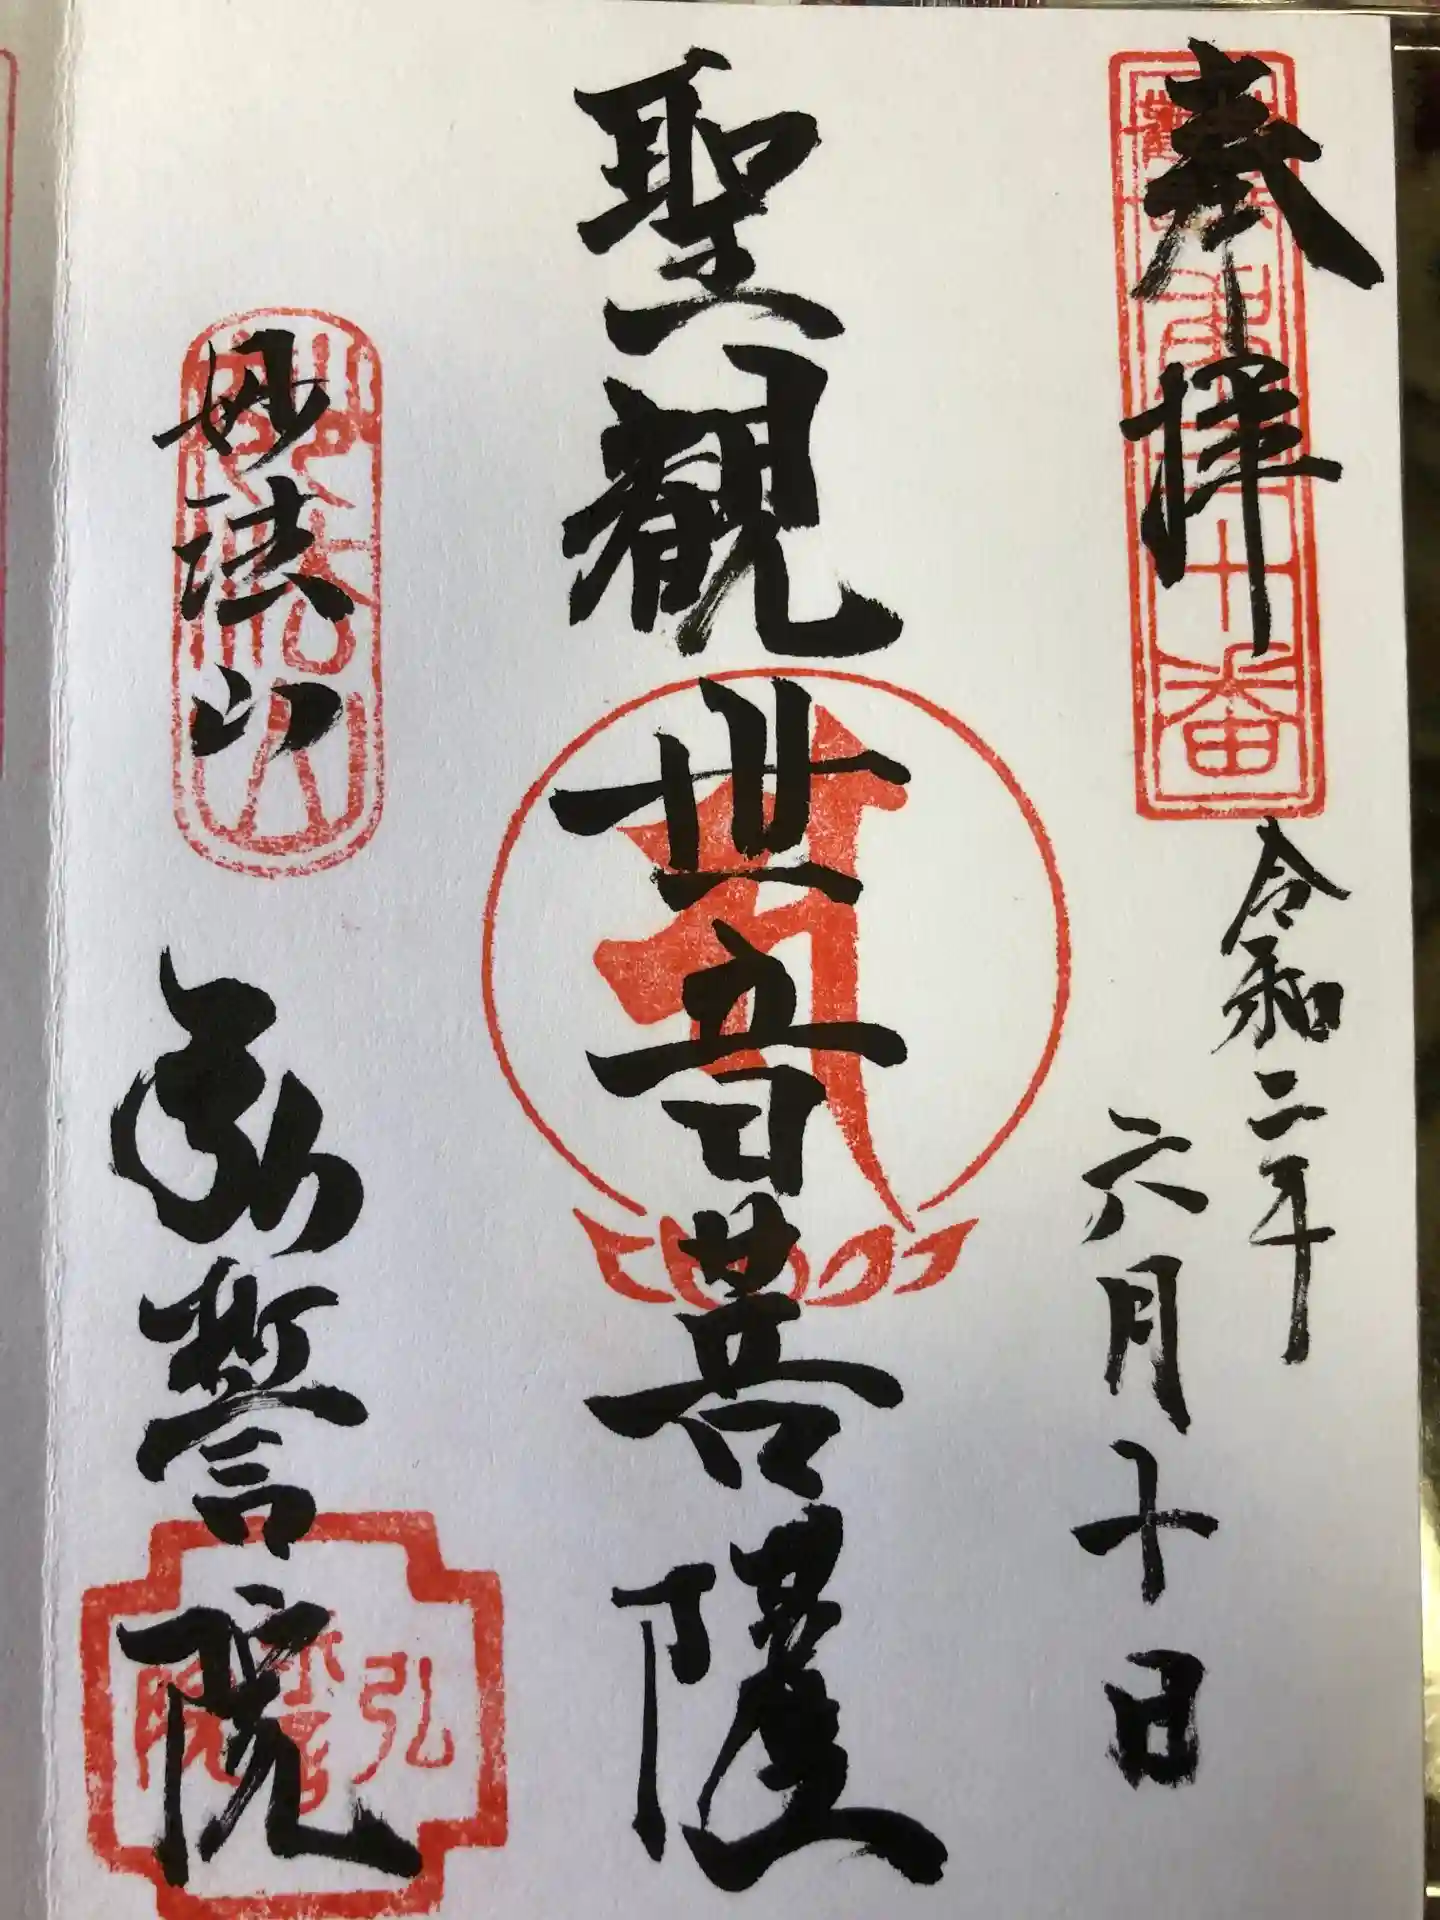 奉拝
令和二年
六月十日
聖観世音菩薩
妙法山
弘誓院
十番
妙法山
弘誓院